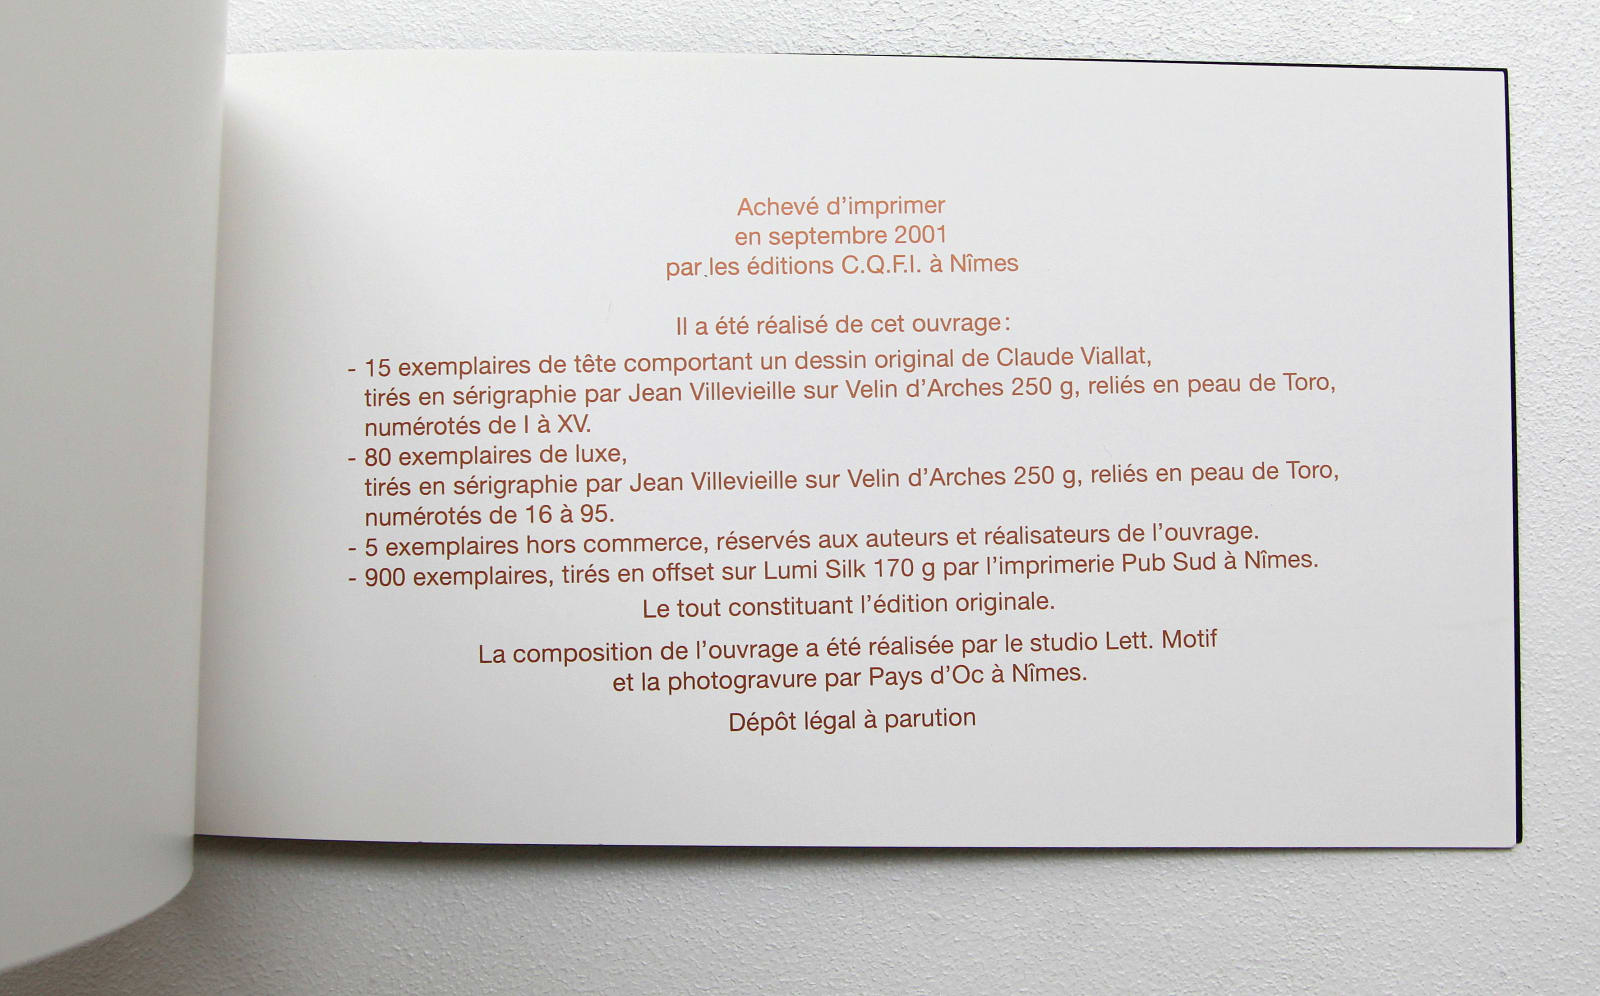 Achevé d'imprimer
en septembre 2001
par les éditions C.Q.F.I. à Nîmes
Il a été réalisé de cet ouvrage :
- 15 exemplaires de tête comportant un dessin original de Claude Viallat,
tirés en sérigraphie par Jean Villevieille sur Velin d'Arches 250 g, reliés en peau de Toro,
numérotés de I à XV.
- 80 exemplaires de luxe,
tirés en sérigraphie par Jean Villevieille sur Velin d'Arches 250 g, reliés en peau de Toro,
numérotés de 16 à 95.
- 5 exemplaires hors commerce, réservés aux auteurs et réalisateurs de l'ouvrage.
- 900 exemplaires, tirés en offset sur Lumi Silk 170 g par l'imprimerie Pub Sud à Nîmes.
Le tout constituant l'édition originale.
La composition de l'ouvrage a été réalisée par le studio Lett. Motif
et la photogravure par Pays d'Oc à Nîmes.
Dépôt légal à parution